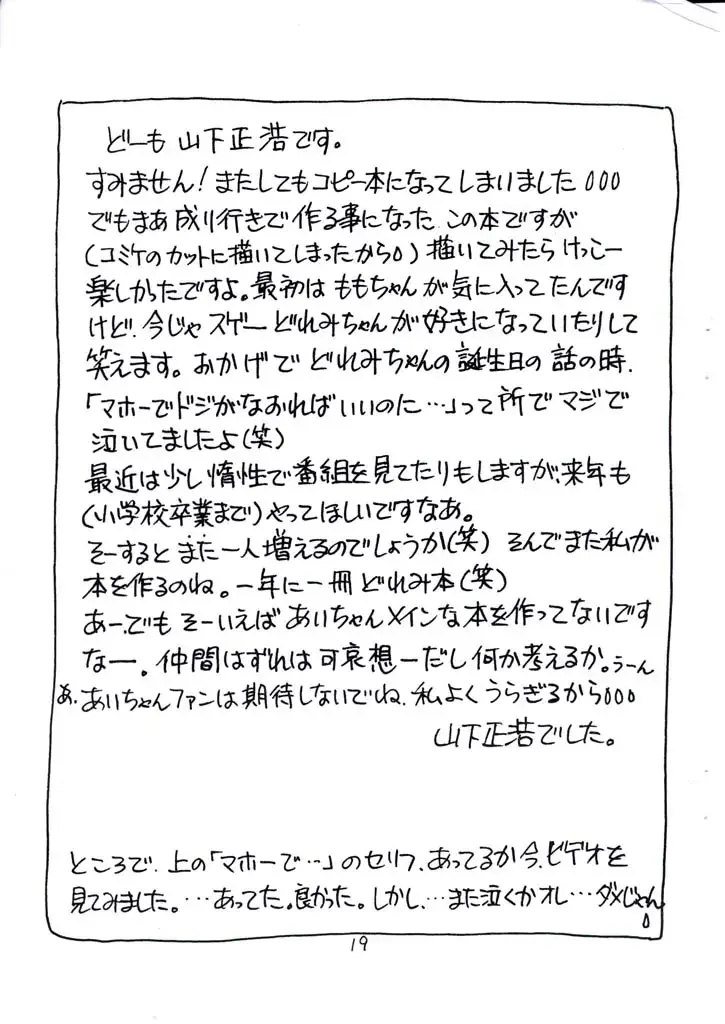 どーも 山下正浩です。
すみません!またしてもコピー本になってしまいました
でもまあ成り行きで作る事になった この本ですが
(コミケのカットに描いてしまったから)描いてみたらけっこー
楽しかったですよ。最初は ももちゃんが気に入ってたんです
けど、今じゃスゲー どれみちゃんが好きになっていたりして
笑えます。おかげで どれみちゃんの誕生日の話の時、
「マホーでドジがなおればいいのに…」って所でマジで
泣いてましたよ(笑)
最近は少し惰性で番組を見てたりもしますが、来年も
(小学校卒業まで)やってほしいですなあ。
そーすると また一人増えるのでしょうか(笑) そんでまた私が
本を作るのね。一年に一冊どれみ本(笑)
あー、でも そーいえば あいちゃんメインな本を作ってないです
なー。仲間はずれは可哀想ーだし何か考えるか。うーん
あ、あいちゃんファンは期待しないでね、私よくうらぎるから
山下正浩でした。
ところで、上の「マホーで…」のセリフ、あってるか今、ビデオを
見てみました。…あってた。良かった。しかし、…また泣くかオレ…ダメじゃん
19